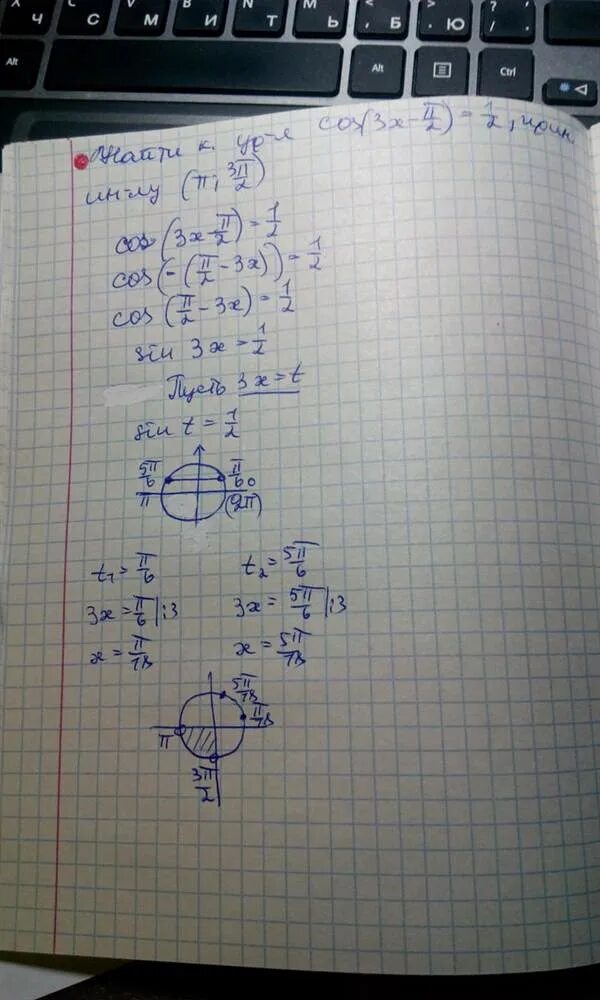 Ч С М И Т Ь Б Ю
Alt Alt Ctrl
Найти к. ур-я cos(3x-π/2)=1/2, прин.
ин-лу (π; 3π/2)
cos(3x-π/2)=1/2
cos(-(π/2-3x))=1/2
cos(π/2-3x)=1/2
sin 3x=1/2
Пусть 3x=t
sin t=1/2
5π/6 π/6
π 0
(2π)
t₁=π/6 t₂=5π/6
3x=π/6 |:3 3x=5π/6 |:3
x=π/18 x=5π/18
5π/18
π/18
π
3π/2